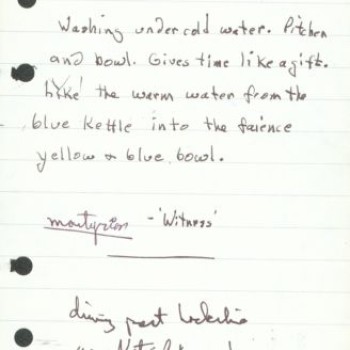 Washing under cold water. Pitcher
and bowl. Gives time like a gift.
the warm water from the
blue kettle into the faience
yellow & blue bowl.
martyrion - 'Witness'
driving past Lockerbie